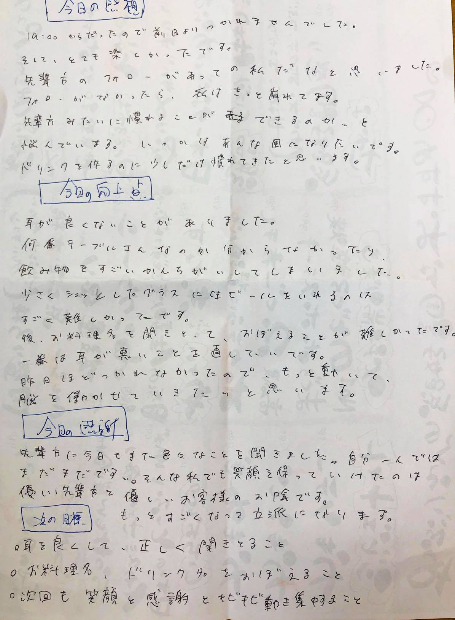 今日の感想
19:00からだったので前日よりつかれませんでした。
そして、とても楽しかったです。
先輩方のフォローがあっての私だなと思いました。
フォローがなかったら、私はきっと崩れてます。
先輩方みたいに慣れることができるのか、と
悩んでいます。いつかはあんな風になりたいです。
ドリンクを作るのに少しだけ慣れてきたと思います。
今日の向上点
耳が良くないことがありました。
何番テーブルさんなのか分からなかったり、
飲み物をすごいかんちがいしてしまいました。
少さくシュッとしたグラスに生ビールをいれるのは
すごく難しかったです。
後、お料理名を聞きとって、おぼえることが難しかったです。
一番は耳が悪いことを直したいです。
昨日ほどつかれなかったので、もっと動いて、
脳を働かせていきたいと思います。
今日の感謝
先輩方に今日もまた色々なことを聞きました。自分一人では
まだまだです。そんな私でも笑顔を保っていけたのは
優しい先輩方と優しいお客様のお陰です。
もっとすごくなって立派になります。
次の目標
○耳を良くして、正しく聞きとること
○お料理名、ドリンク名をおぼえること
○次回も笑顔と感謝とキビキビ動き集中すること